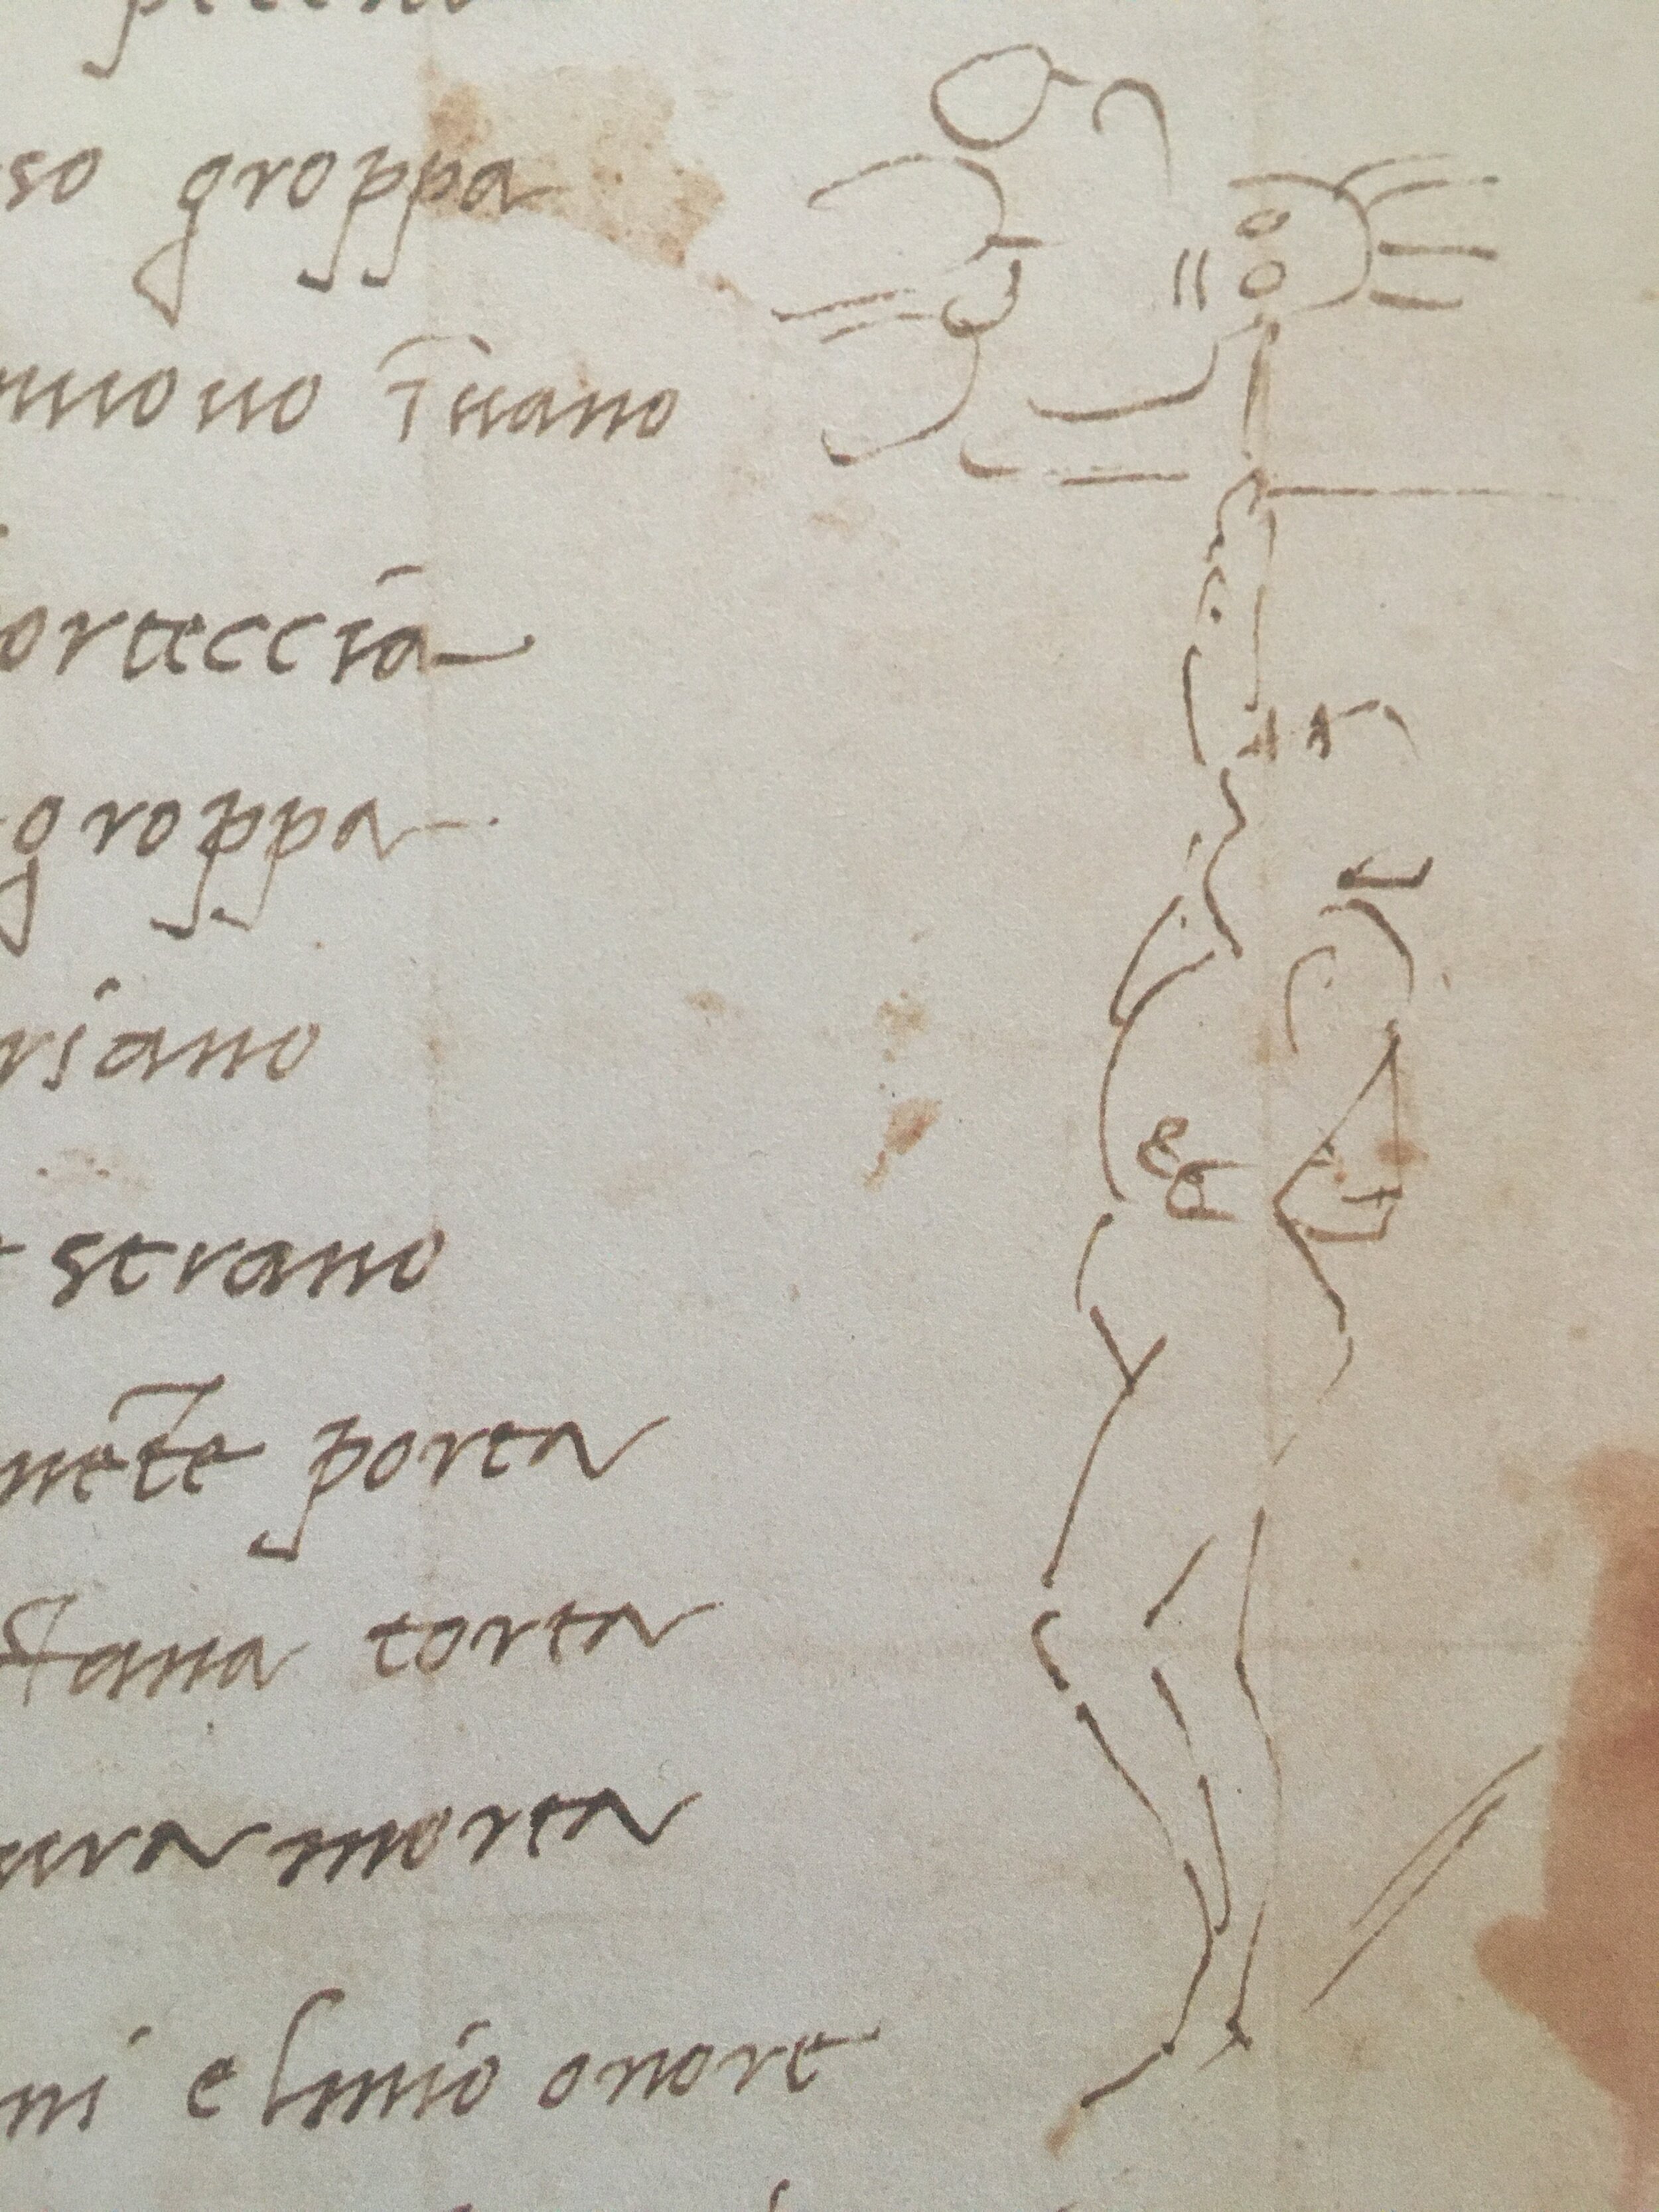 so groppa
muouo ĩuano
orteccia
groppa
riano
strano
mẽte porta
tana torta
ura morta
ni elmio onore